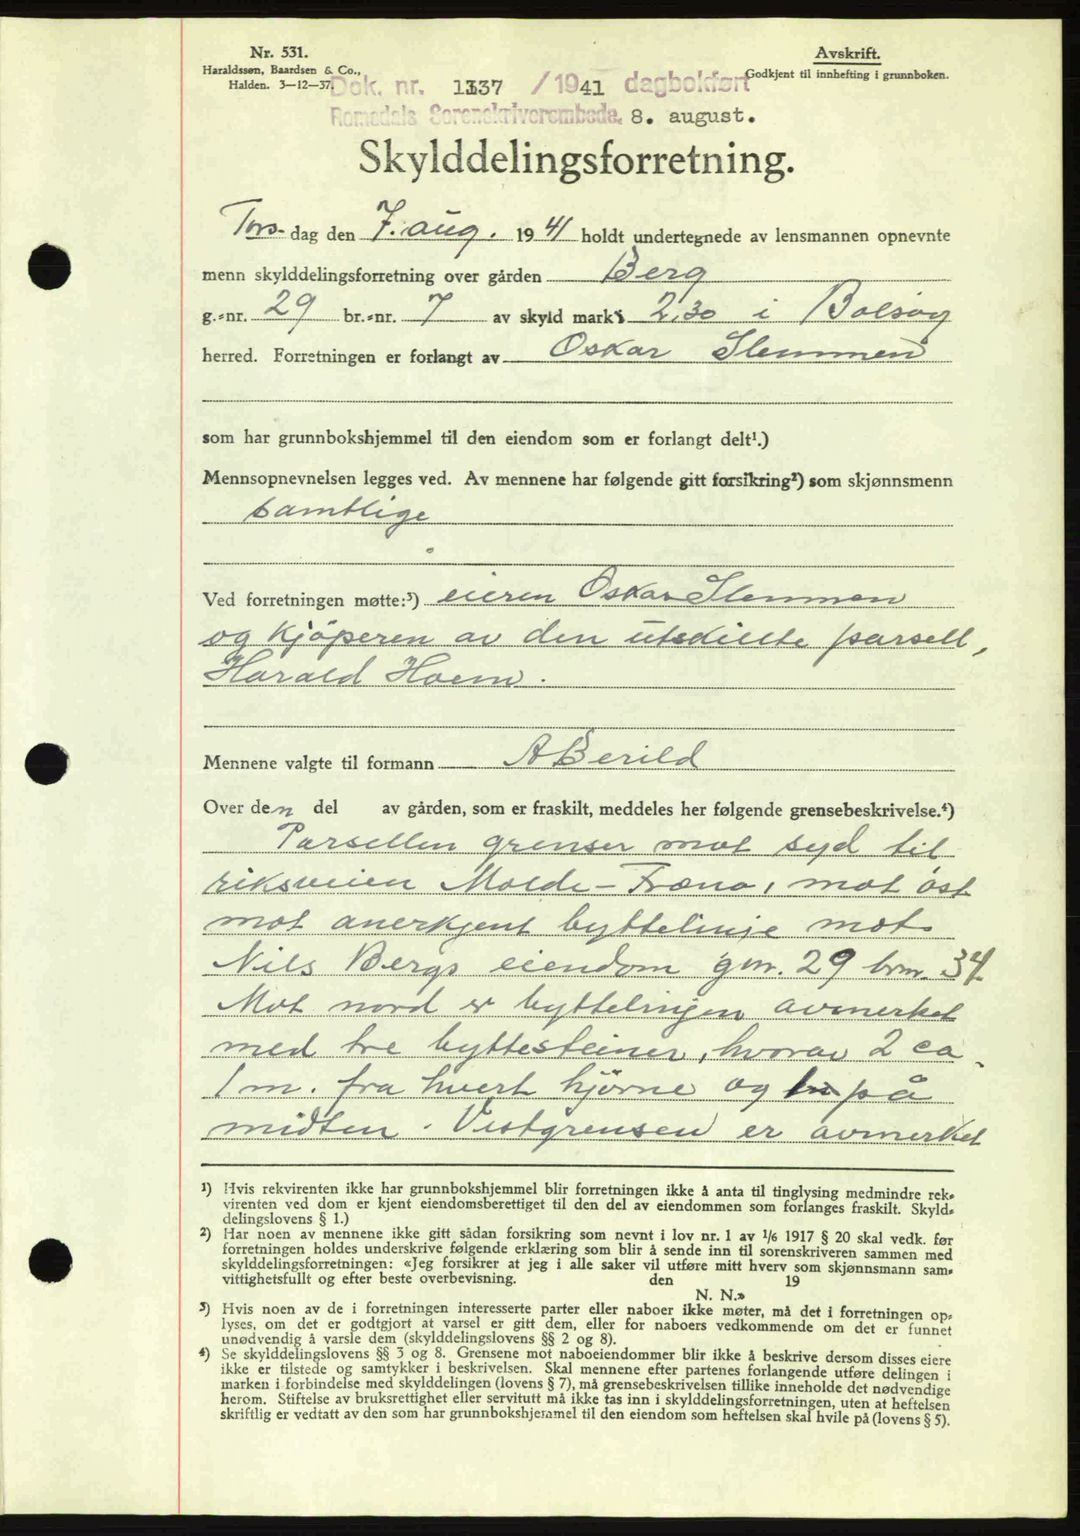 Nr. 531.
Haraldssøn, Baardsen & Co.,
Halden. 3—12—37.
Avskrift.
Godkjent til innhefting i grunnboken.
Dok. nr. 1337 / 1941 dagbokført
Romsdals Sorenskriverembede. 8. august.
Skylddelingsforretning.
Tors- dag den 7. aug. 1941 holdt undertegnede av lensmannen opnevnte
menn skylddelingsforretning over gården Berg
g.-nr. 29 br.-nr. 7 av skyld mark 2,30 i Bolsøy
herred. Forretningen er forlangt av Oskar Slemmen
som har grunnbokshjemmel til den eiendom som er forlangt delt¹.)
Mennsopnevnelsen legges ved. Av mennene har følgende gitt forsikring²) som skjønnsmenn
samtlige
Ved forretningen møtte:³) eieren Oskar Slemmen
og kjöperen av den utskillte parsell,
Harald Hoem.
Mennene valgte til formann A Berild
Over den del av gården, som er fraskilt, meddeles her følgende grensebeskrivelse.⁴)
Parsellen grenser mot syd til
riksveien Molde - Fræna, mot öst
mot anerkjent byttelinje mot
Nils Bergs eiendom gnr. 29 brnr. 34
Mot nord er byttelinjen avmerket
med tre byttesteiner, hvorav 2 ca
1 m. fra hvert hjörne og på
midten. Vestgrensen er avmerket
¹) Hvis rekvirenten ikke har grunnbokshjemmel blir forretningen ikke å anta til tinglysing medmindre rek-
virenten ved dom er kjent eiendomsberettiget til den del av eiendommen som forlanges fraskilt. Skyld-
delingslovens § 1.)
²) Har noen av mennene ikke gitt sådan forsikring som nevnt i lov nr. 1 av 1/6 1917 § 20 skal vedk. før
forretningen holdes underskrive følgende erklæring som blir å sende inn til sorenskriveren sammen med
skylddelingsforretningen: «Jeg forsikrer at jeg i alle saker vil utføre mitt hverv som skjønnsmann sam-
vittighetsfullt og efter beste overbevisning. den 19
N. N.»
³) Hvis noen av de i forretningen interesserte parter eller naboer ikke møter, må det i forretningen op-
lyses, om det er godtgjort at varsel er gitt dem, eller for naboers vedkommende om det er funnet
unødvendig å varsle dem (skylddelingslovens §§ 2 og 8).
⁴) Se skylddelingslovens §§ 3 og 8. Grensene mot naboeiendommer blir ikke å beskrive dersom disses eiere
ikke er tilstede og samtykker i beskrivelsen. Skal mennene efter partenes forlangende utføre delingen i
marken i forbindelse med skylddelingen (lovens § 7), må grensebeskrivelsen tillike inneholde det nødvendige
herom. Stiftelse av bruksrettighet eller servitutt må ikke tas inn i skylddelingsforretningen, uten at heftelsen
skriftlig er vedtatt av den som har grunnbokshjemmel til den eiendom som heftelsen skal hvile på (lovens § 5).